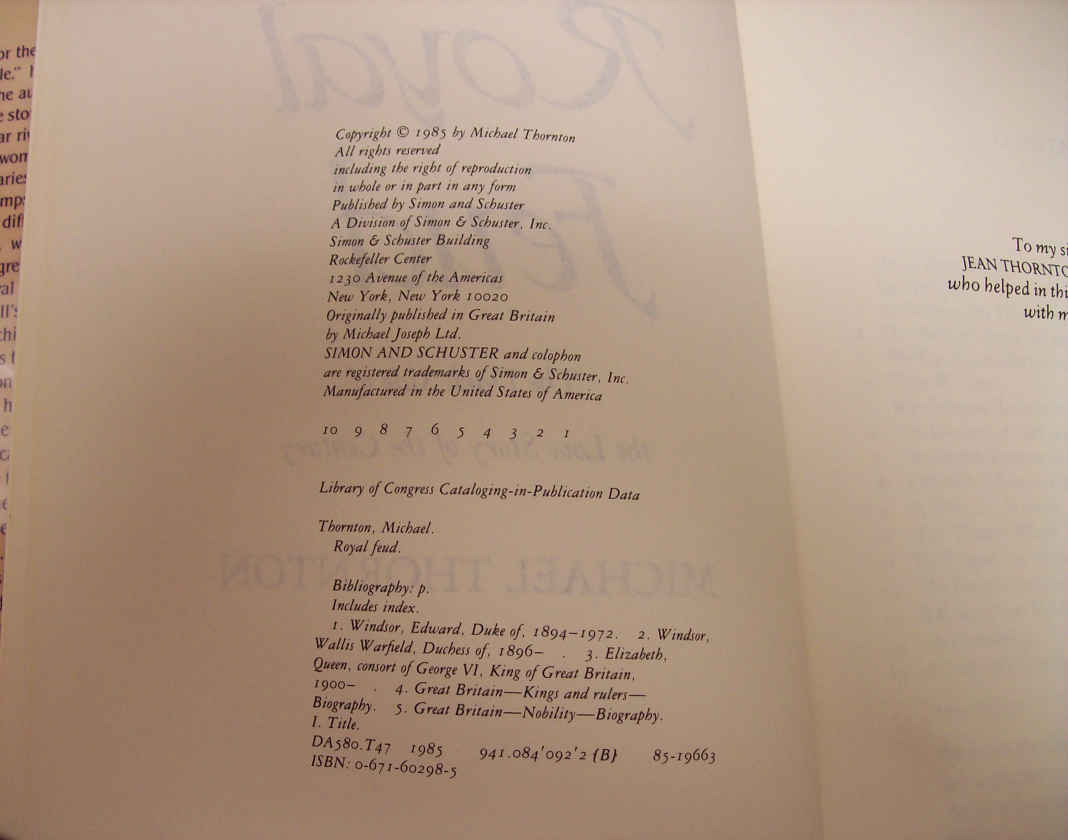 Copyright © 1985 by Michael Thornton
All rights reserved
including the right of reproduction
in whole or in part in any form
Published by Simon and Schuster
A Division of Simon & Schuster, Inc.
Simon & Schuster Building
Rockefeller Center
1230 Avenue of the Americas
New York, New York 10020
Originally published in Great Britain
by Michael Joseph Ltd.
SIMON AND SCHUSTER and colophon
are registered trademarks of Simon & Schuster, Inc.
Manufactured in the United States of America
10 9 8 7 6 5 4 3 2 1
Library of Congress Cataloging-in-Publication Data
Thornton, Michael.
Royal feud.
Bibliography: p.
Includes index.
1. Windsor, Edward, Duke of, 1894–1972. 2. Windsor,
Wallis Warfield, Duchess of, 1896– . 3. Elizabeth,
Queen, consort of George VI, King of Great Britain,
1900– . 4. Great Britain—Kings and rulers—
Biography. 5. Great Britain—Nobility—Biography.
I. Title.
DA580.T47 1985 941.084'092'2 {B} 85-19663
ISBN: 0-671-60298-5
To my
JEAN
who helped in
with